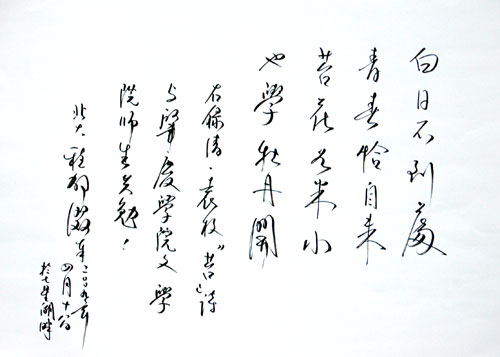 白日不到處
青春恰自来
苔花如米小
也學牡丹開
右録清·袁枚“苔”詩
与肇慶學院文學
院師生共勉！
北大 程郁綴 二〇〇九年
四月十
於七星湖畔